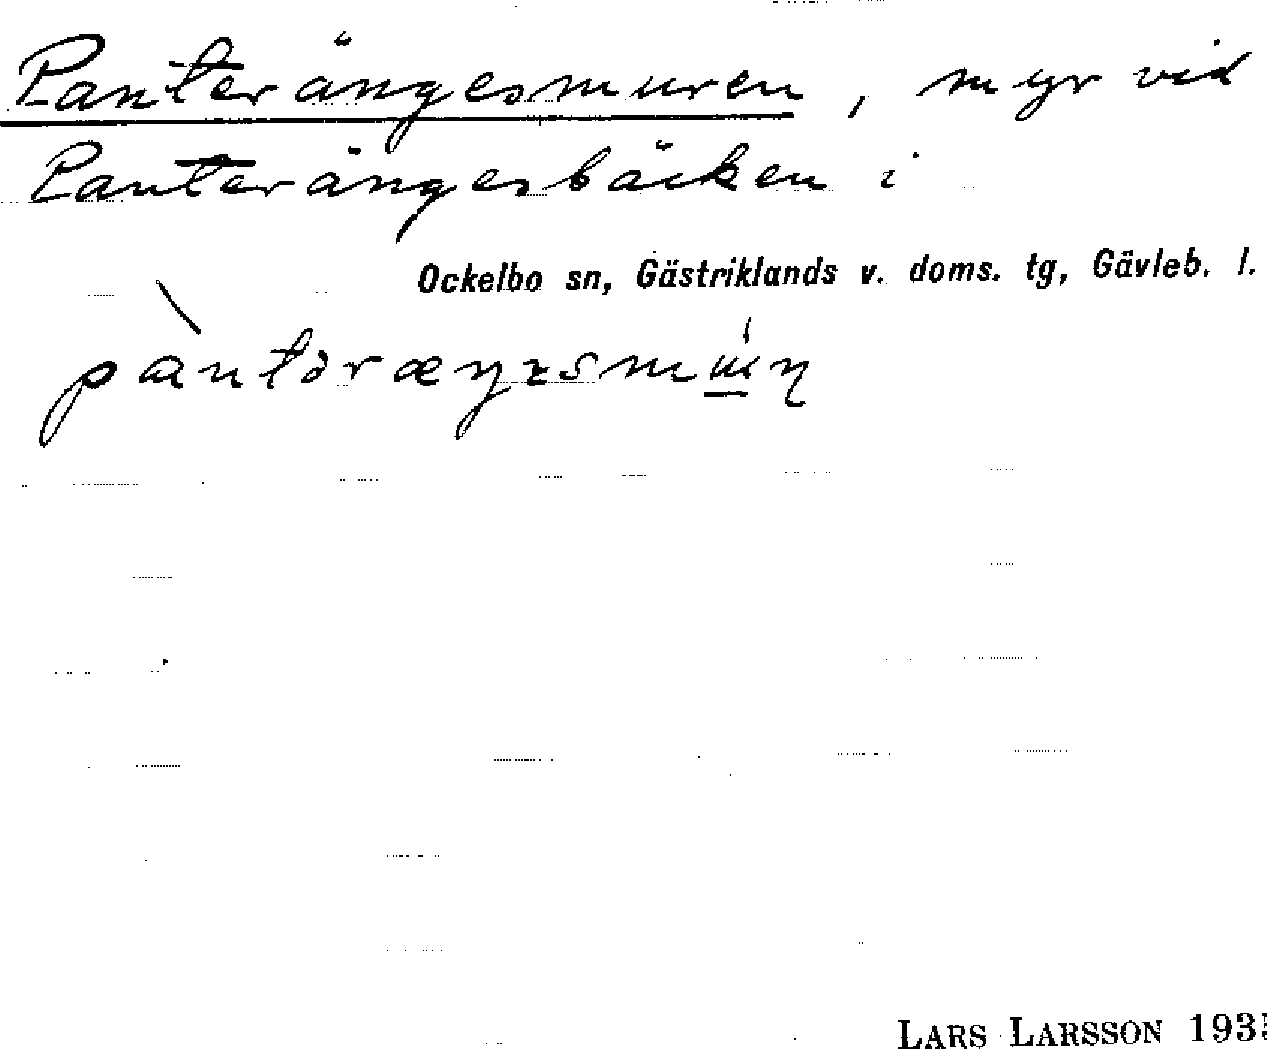 Panterängesmuren, myr vid
Panterängesbäcken i
Ockelbo sn, Gästriklands v. doms. tg, Gävleb. l.
LARS LARSSON 193